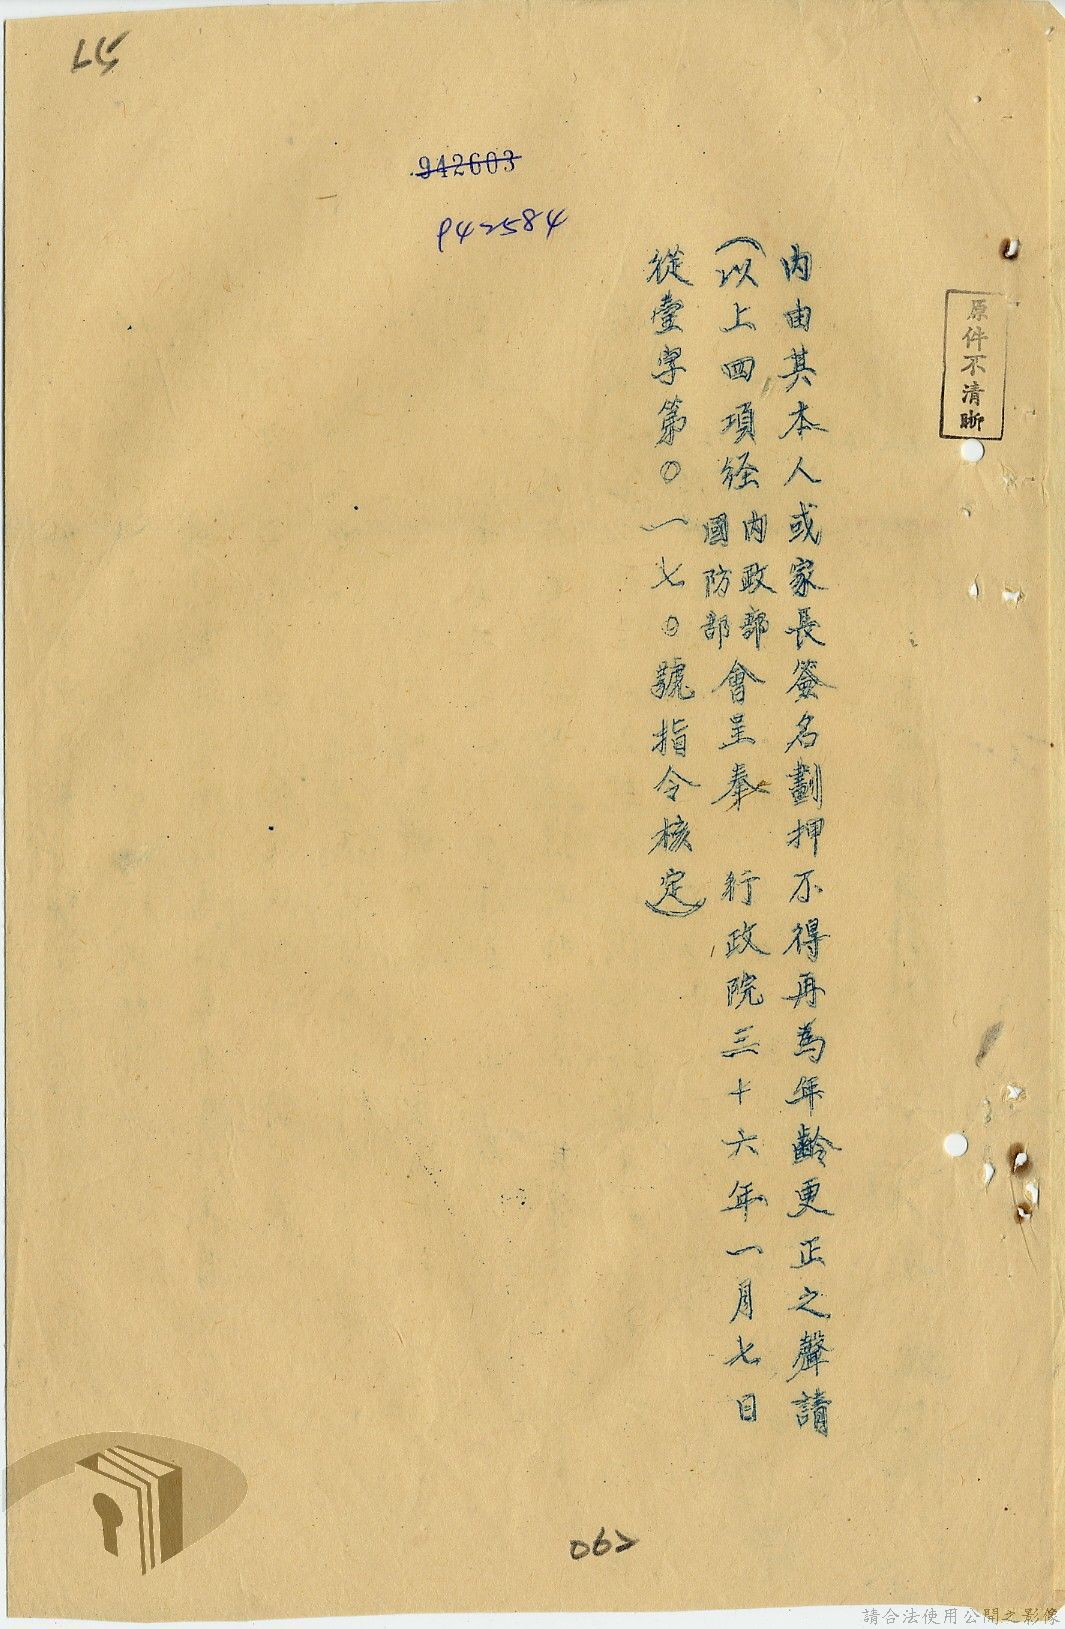 942603
942584
原件不清晰
內由其本人或家長簽名劃押不得再為年齡更正之聲請
(以上四項経內政部國防部會呈奉 行政院三十六年一月七日
從壹字第〇一七〇號指令核定)
062
請合法使用公開之影像